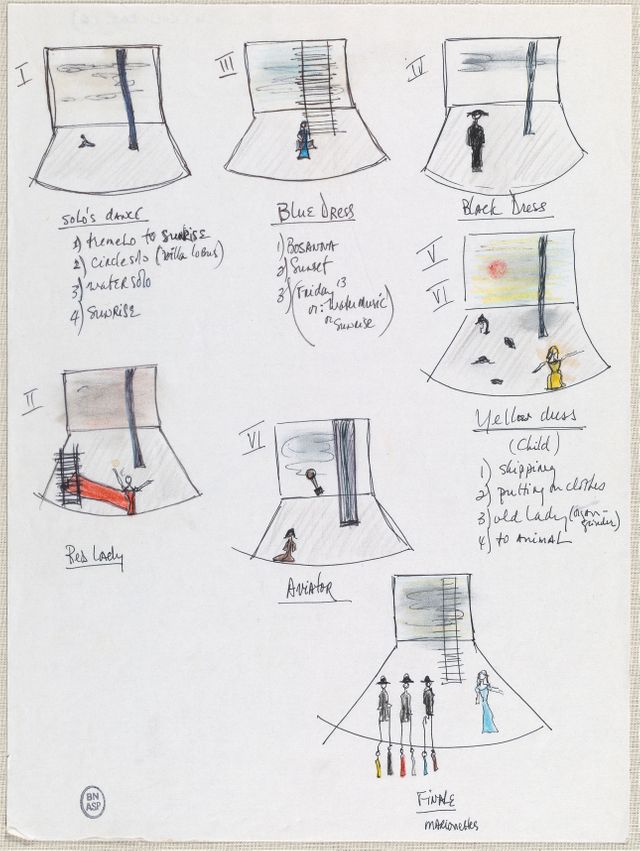 I
SOLO'S DANCE
1) tremelo to SUNRISE
2) circle solo (Villa Lobus)
3) water solo
4) SUNRISE
III
BLUE DRESS
1) BOSANNA
2) Sunset
3) (Friday 13
or: water music
or SUNRISE)
IV
BLACK DRESS
V
VI
Yellow dress
(Child)
1) skipping
2) putting on clothes
3) old Lady (organ-
grinder)
4) to ANIMAL
II
Red Lady
VI
AVIATOR
FINALE
MARIONETTES
BN
ASP